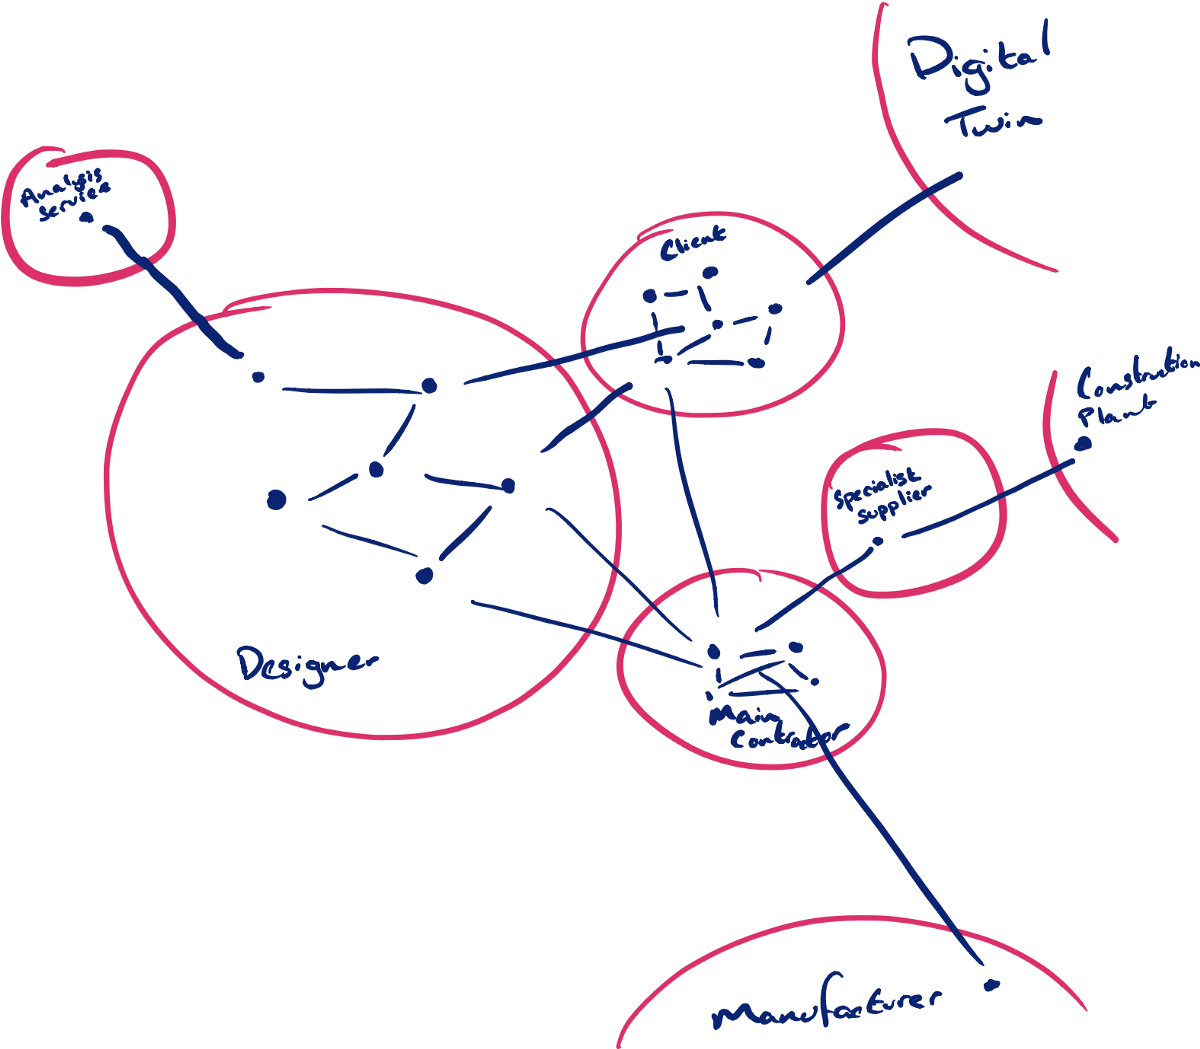 Digital
Twin
Analysis
Service
Client
Construction
Plant
Specialist
supplier
Designer
Main
Contractor
Manufacturer